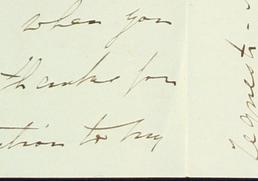 when you
thanks for
ation to my
request